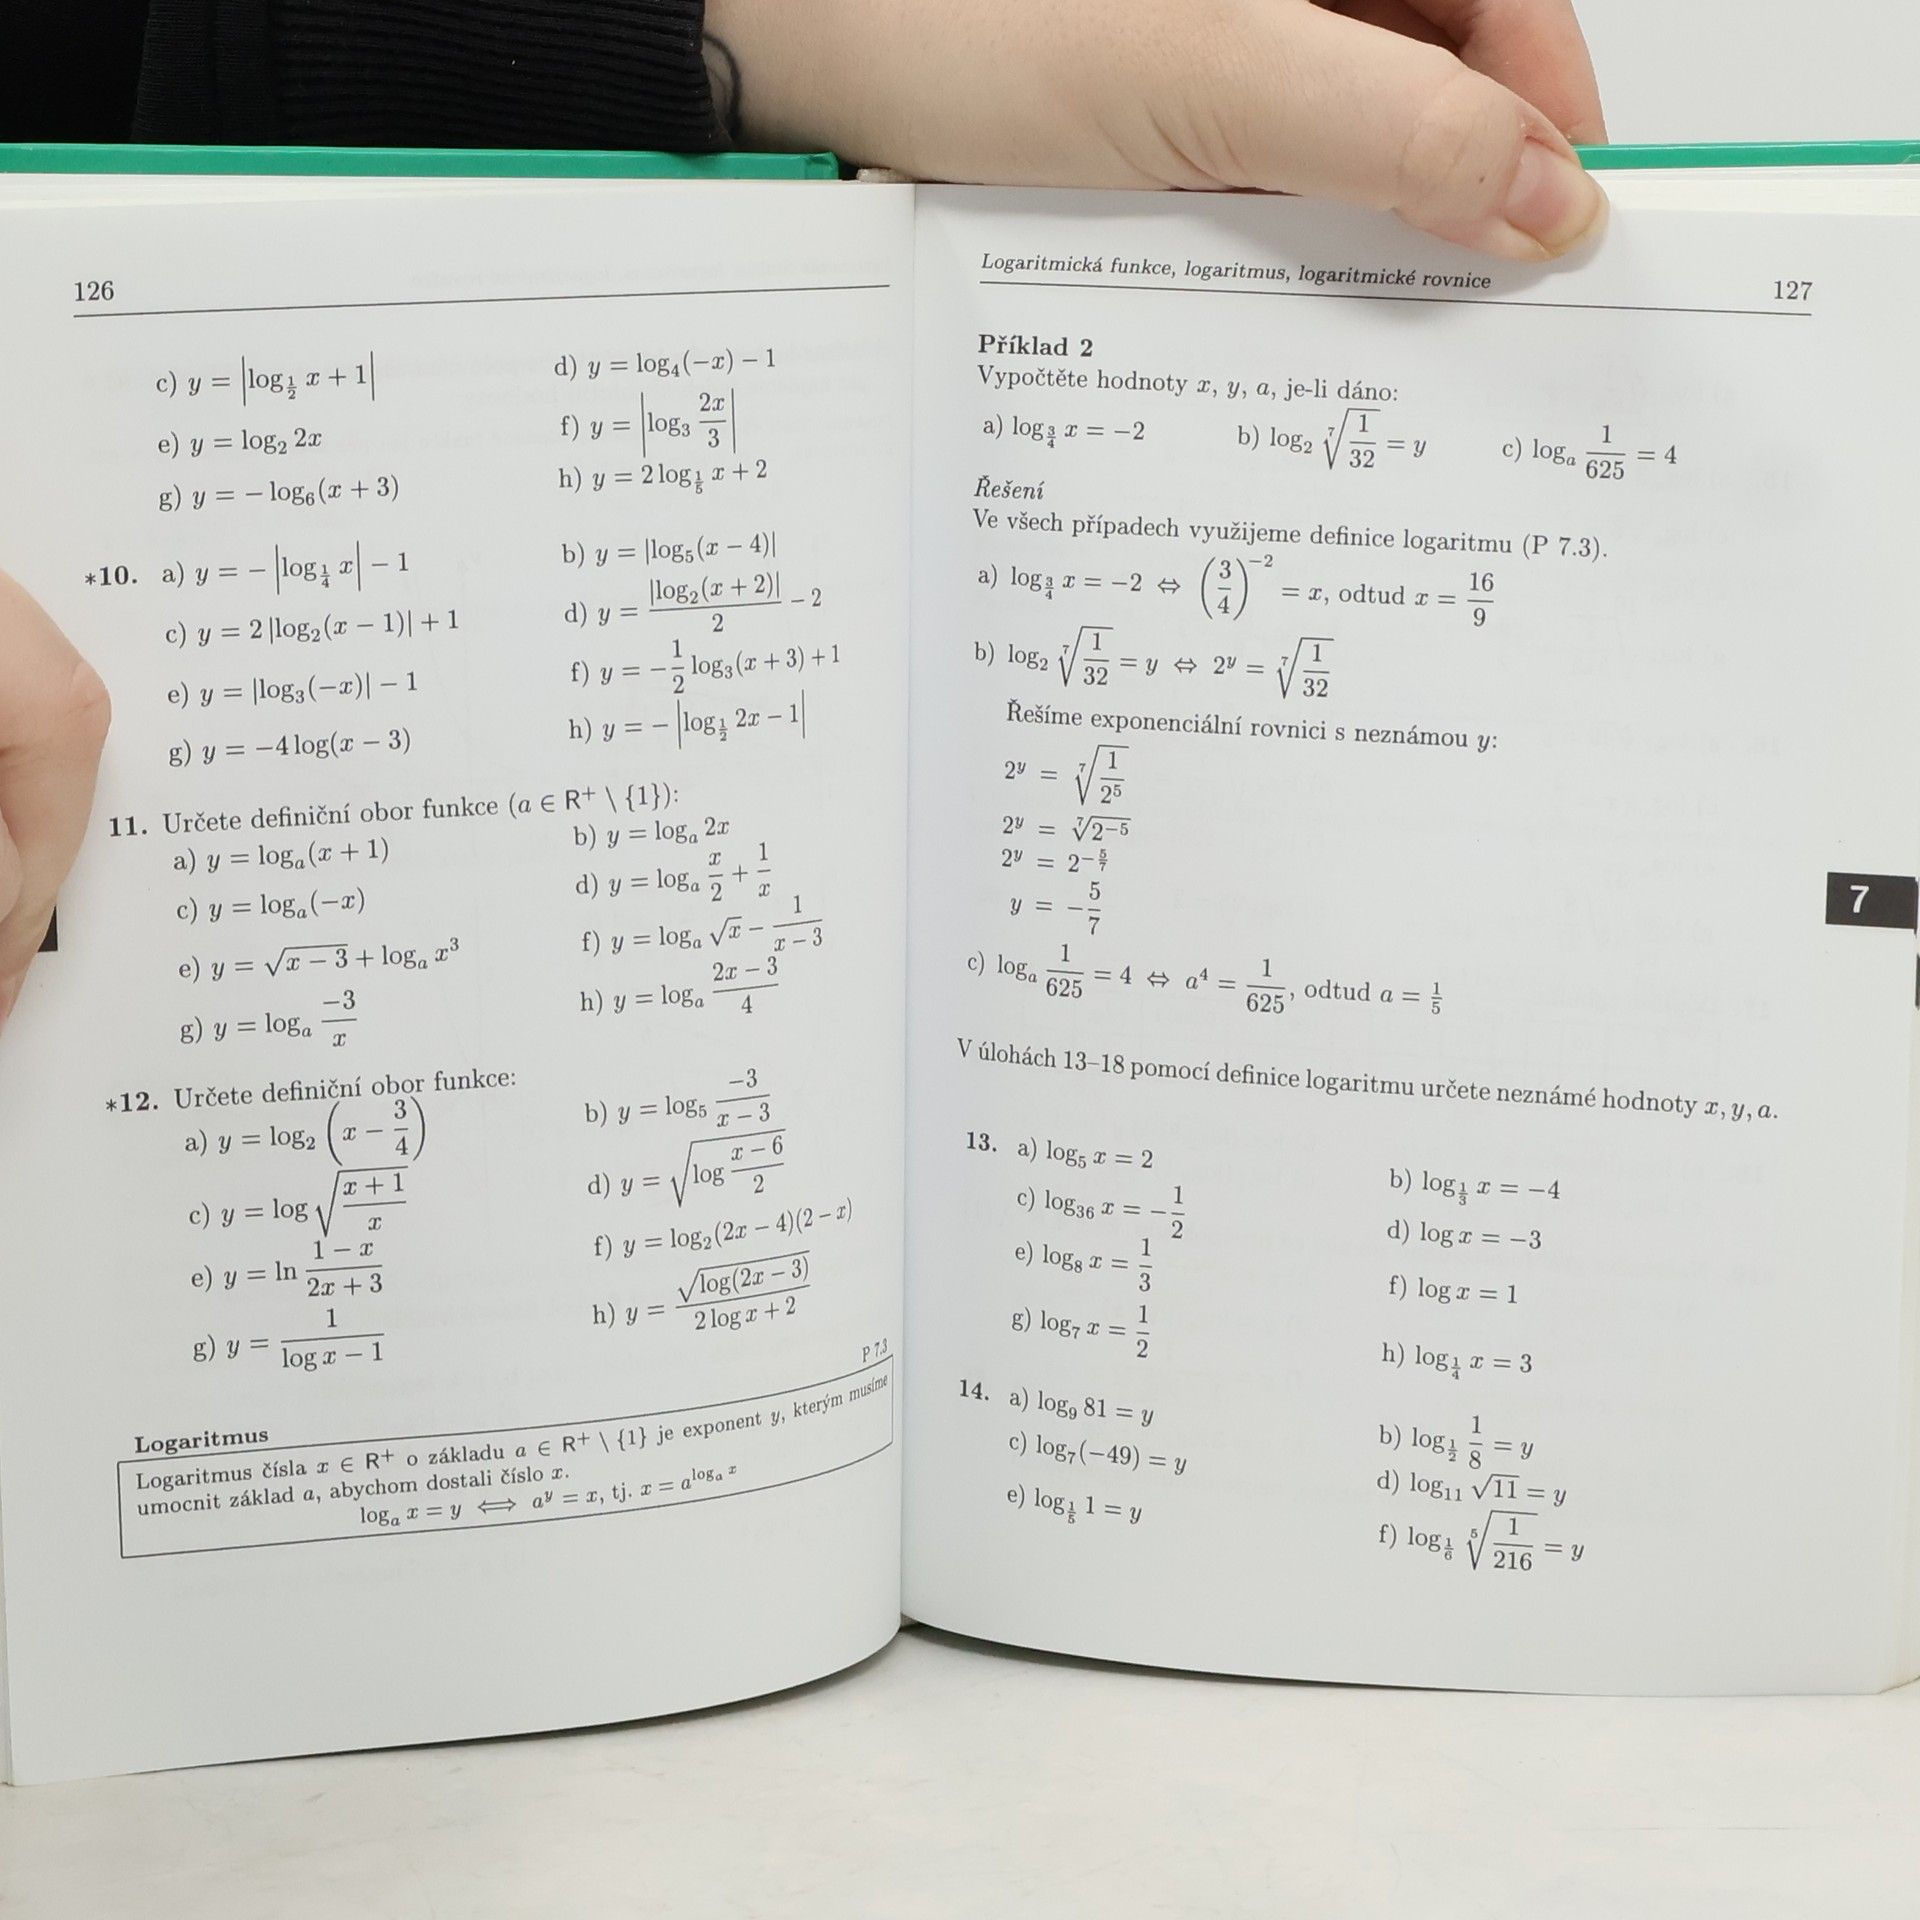 126
c) y = |log_{1/2} x + 1|
d) y = log₄(−x) − 1
e) y = log₂ 2x
f) y = |log₃ 2x/3|
g) y = − log₆(x + 3)
h) y = 2 log_{1/5} x + 2
*10. a) y = − |log_{1/4} x| − 1
b) y = |log₅(x − 4)|
c) y = 2 |log₂(x − 1)| + 1
d) y = |log₂(x + 2)|/2 − 2
e) y = |log₃(−x)| − 1
f) y = −1/2 log₃(x + 3) + 1
g) y = −4 log(x − 3)
h) y = − |log_{1/2} 2x − 1|
11. Určete definiční obor funkce (a ∈ R⁺ \ {1}):
a) y = logₐ(x + 1)
b) y = logₐ 2x
c) y = logₐ(−x)
d) y = logₐ x/2 + 1/x
e) y = √(x − 3) + logₐ x³
f) y = logₐ √x − 1/(x − 3)
g) y = logₐ −3/x
h) y = logₐ (2x − 3)/4
*12. Určete definiční obor funkce:
a) y = log₂ (x − 3/4)
b) y = log₅ −3/(x − 3)
c) y = log √((x + 1)/x)
d) y = √(log (x − 6)/2)
e) y = ln (1 − x)/(2x + 3)
f) y = log₂(2x − 4)(2 − x)
g) y = 1/(log x − 1)
h) y = √(log(2x − 3))/(2 log x + 2)
Logaritmus
P 7.3
Logaritmus čísla x ∈ R⁺ o základu a ∈ R⁺ \ {1} je exponent y, kterým musíme
umocnit základ a, abychom dostali číslo x.
logₐ x = y ⟺ a^y = x, tj. x = a^{logₐ x}
Logaritmická funkce, logaritmus, logaritmické rovnice
127
Příklad 2
Vypočtěte hodnoty x, y, a, je-li dáno:
a) log_{3/4} x = −2 b) log₂ ⁷√(1/32) = y c) logₐ 1/625 = 4
Řešení
Ve všech případech využijeme definice logaritmu (P 7.3).
a) log_{3/4} x = −2 ⇔ (3/4)^{−2} = x, odtud x = 16/9
b) log₂ ⁷√(1/32) = y ⇔ 2^y = ⁷√(1/32)
Řešíme exponenciální rovnici s neznámou y:
2^y = ⁷√(1/2⁵)
2^y = ⁷√(2^{−5})
2^y = 2^{−5/7}
y = −5/7
c) logₐ 1/625 = 4 ⇔ a⁴ = 1/625, odtud a = 1/5
7
V úlohách 13–18 pomocí definice logaritmu určete neznámé hodnoty x, y, a.
13. a) log₅ x = 2
b) log_{1/3} x = −4
c) log₃₆ x = −1/2
d) log x = −3
e) log₈ x = 1/3
f) log x = 1
g) log₇ x = 1/2
h) log_{1/4} x = 3
14. a) log₉ 81 = y
b) log_{1/2} 1/8 = y
c) log₇(−49) = y
d) log₁₁ √11 = y
e) log_{1/5} 1 = y
f) log_{1/6} ⁵√(1/216) = y